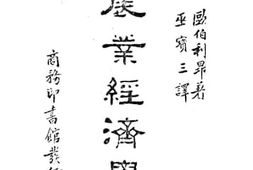 歐伯利昂著
巫寶三譯
農業經濟學
商務印書館發行